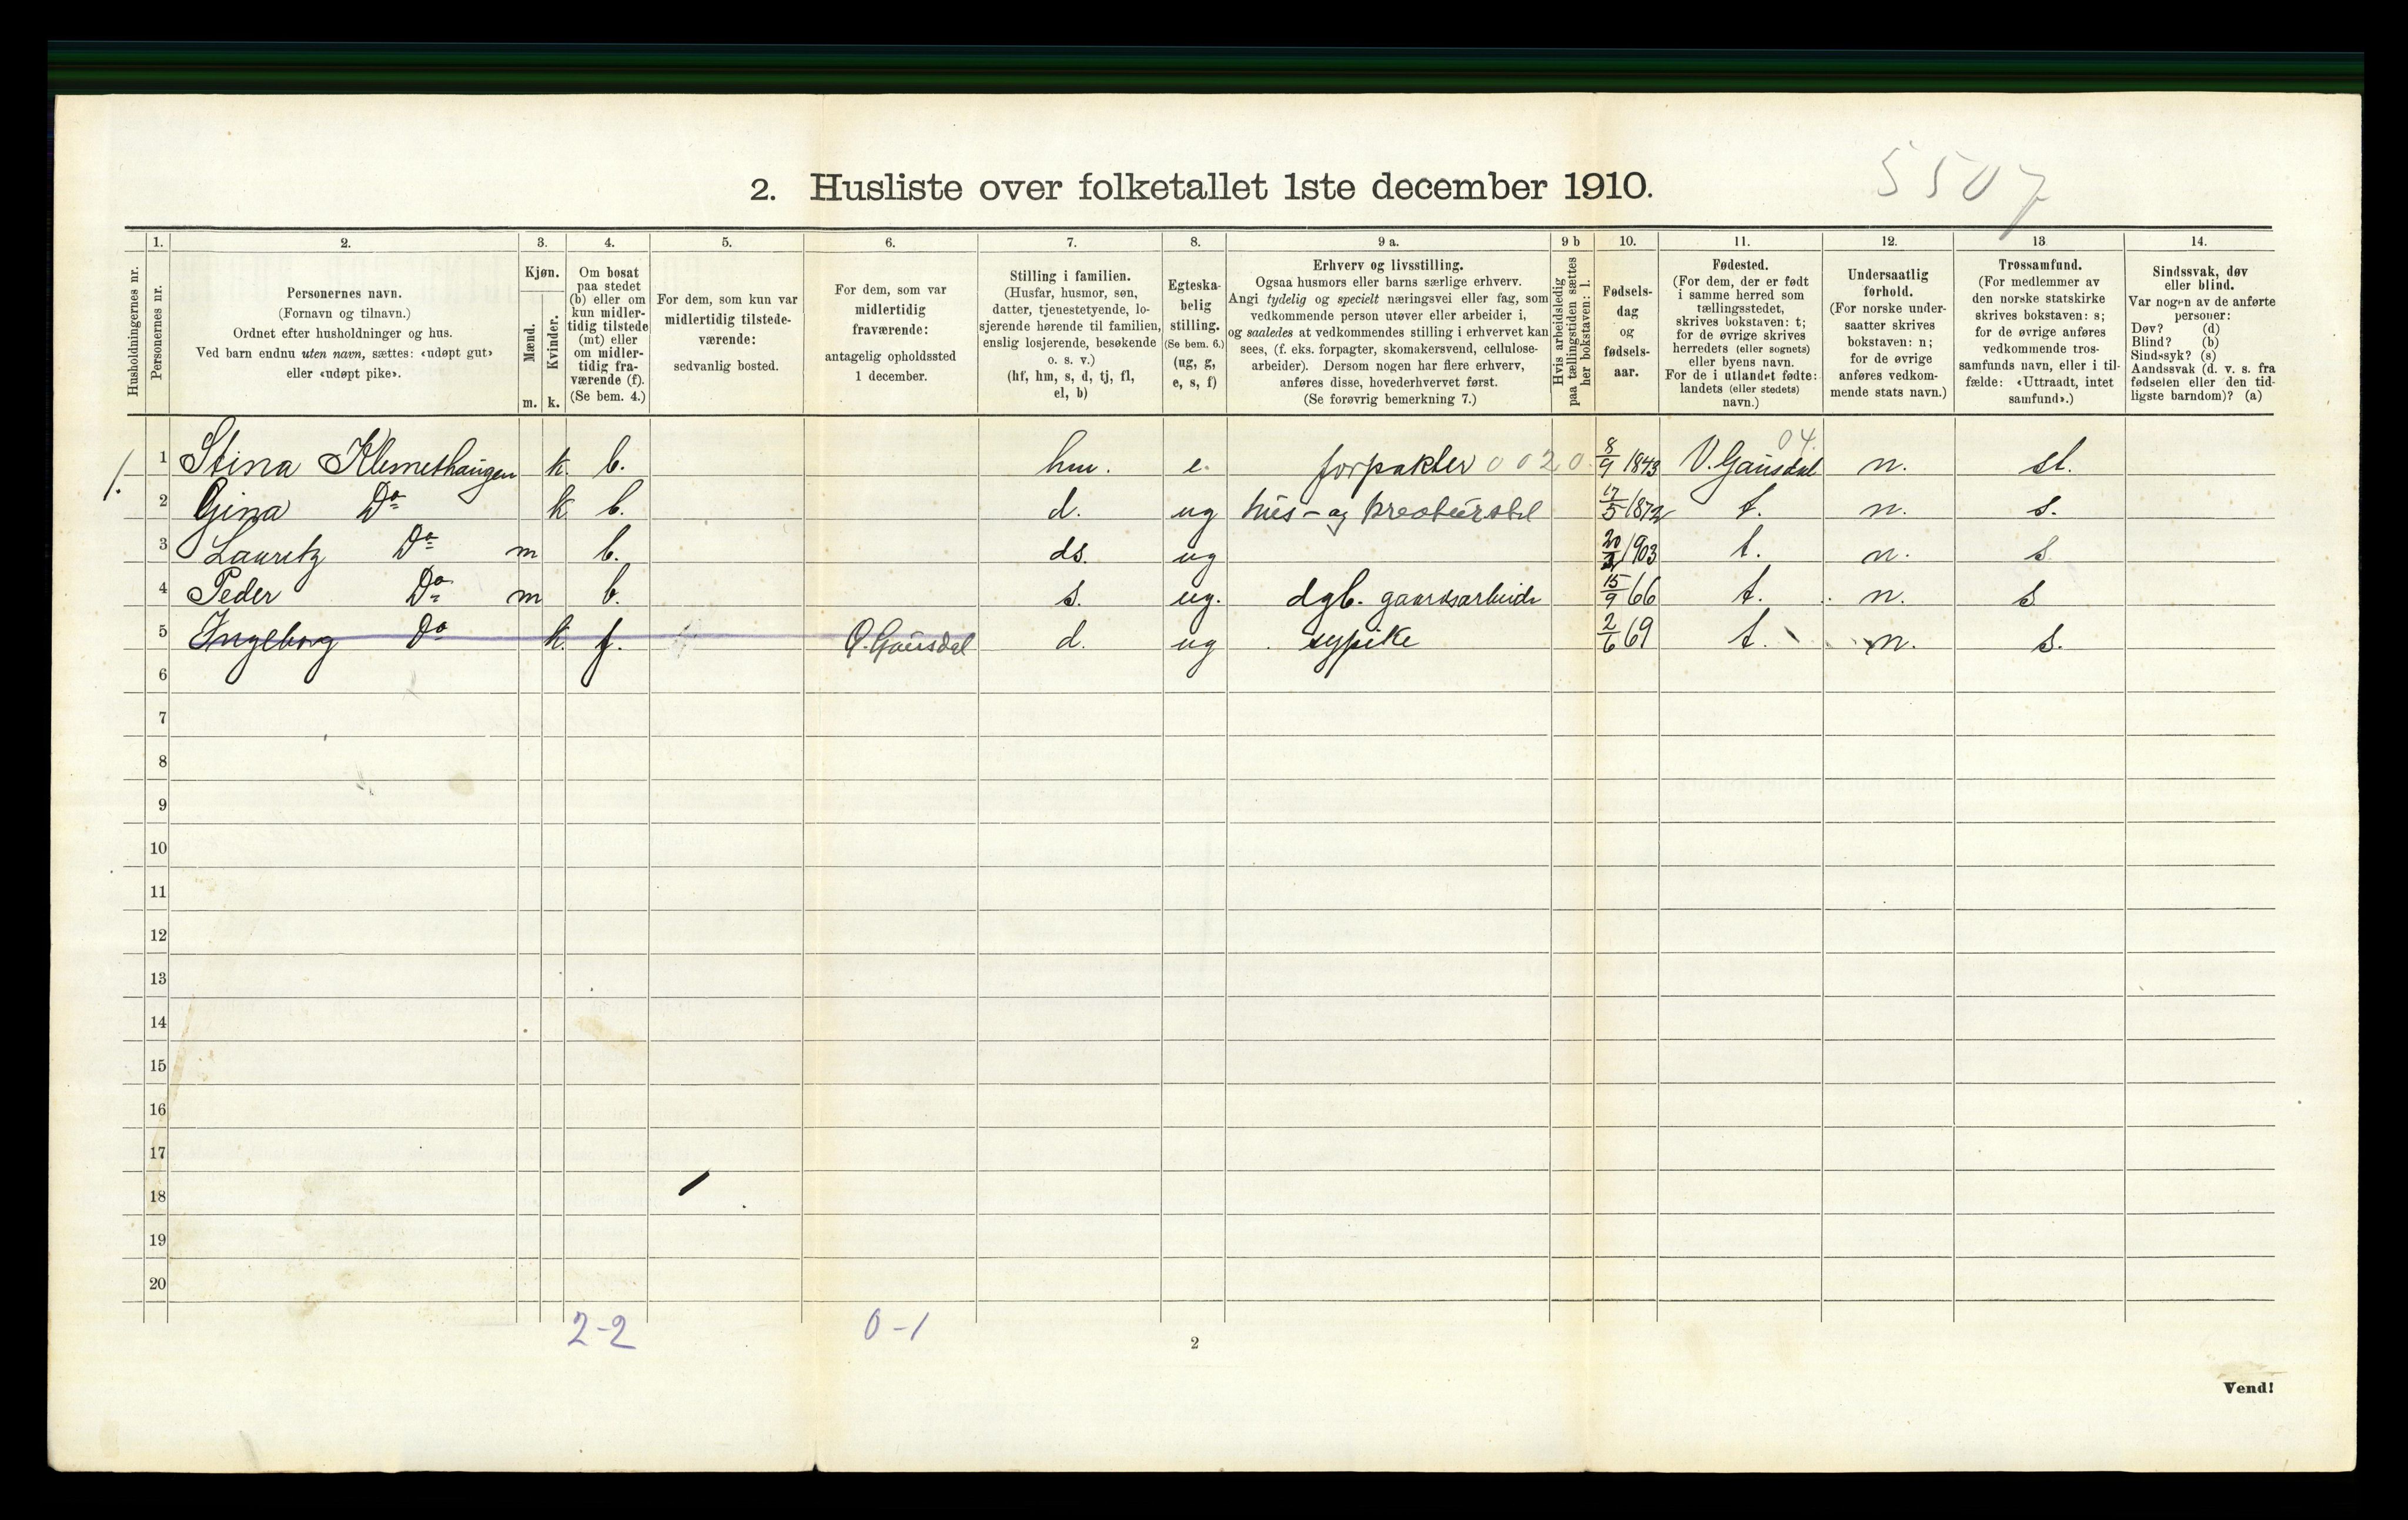 5507
2. Husliste over folketallet 1ste december 1910.
Husholdningernes nr.
1.
Personernes nr.
2.
Personernes navn.
(Fornavn og tilnavn.)
Ordnet efter husholdninger og hus.
Ved barn endnu uten navn, sættes: «udøpt gut»
eller «udøpt pike».
3.
Kjøn.
Mænd.
Kvinder.
m. k.
4.
Om bosat
paa stedet
(b) eller om
kun midler-
tidig tilstede
(mt) eller
om midler-
tidig fra-
værende (f).
(Se bem. 4.)
5.
For dem, som kun var
midlertidig tilstede-
værende:
sedvanlig bosted.
6.
For dem, som var
midlertidig
fraværende:
antagelig opholdssted
1 december.
7.
Stilling i familien.
(Husfar, husmor, søn,
datter, tjenestetyende, lo-
sjerende hørende til familien,
enslig losjerende, besøkende
o. s. v.)
(hf, hm, s, d, tj, fl,
el, b)
8.
Egteska-
belig
stilling.
(Se bem. 6.)
(ug, g,
e, s, f)
9 a.
Erhverv og livsstilling.
Ogsaa husmors eller barns særlige erhverv.
Angi tydelig og specielt næringsvei eller fag, som
vedkommende person utøver eller arbeider i,
og saaledes at vedkommendes stilling i erhvervet kan
sees, (f. eks. forpagter, skomakersvend, cellulose-
arbeider). Dersom nogen har flere erhverv,
anføres disse, hovederhvervet først.
(Se forøvrig bemerkning 7.)
9 b
Hvis arbeidsledig
paa tællingstiden sættes
her bokstaven: l.
10.
Fødsels-
dag
og
fødsels-
aar.
11.
Fødested.
(For dem, der er født
i samme herred som
tællingsstedet,
skrives bokstaven: t;
for de øvrige skrives
herredets (eller sognets)
eller byens navn.
For de i utlandet fødte:
landets (eller stedets)
navn.)
12.
Undersaatlig
forhold.
(For norske under-
saatter skrives
bokstaven: n;
for de øvrige
anføres vedkom-
mende stats navn.)
13
Trossamfund.
(For medlemmer av
den norske statskirke
skrives bokstaven: s;
for de øvrige anføres
vedkommende tros-
samfunds navn, eller i til-
fælde: «Uttraadt, intet
samfund».)
14.
Sindssvak, døv
eller blind.
Var nogen av de anførte
personer:
Døv? (d)
Blind? (b)
Sindssyk? (s)
Aandssvak (d. v. s. fra
fødselen eller den tid-
ligste barndom)? (a)
04.
1. 1 Stina Klemethaugen k. b. hm. e. forpakter 0 0 2 0 8/9 1843 V. Gausdal n. st.
2 Gina Do k b. d. ug hus- og kreaturstel 17/5 1872 t. n. s.
3 Lauritz Do m b. ds. ug 1903 t. n. s
4 Peder Do m b. s. ug. dgb. gaardsarbeide 15/9 66 t. n. s
5 Ingeborg Do k. f. Ø. Gausdal d. ug sypike 2/6 69 t. n. s.
6
7
8
9
10
11
12
13
14
15
16
17
18
19
20
2-2 0-1
2
Vend!